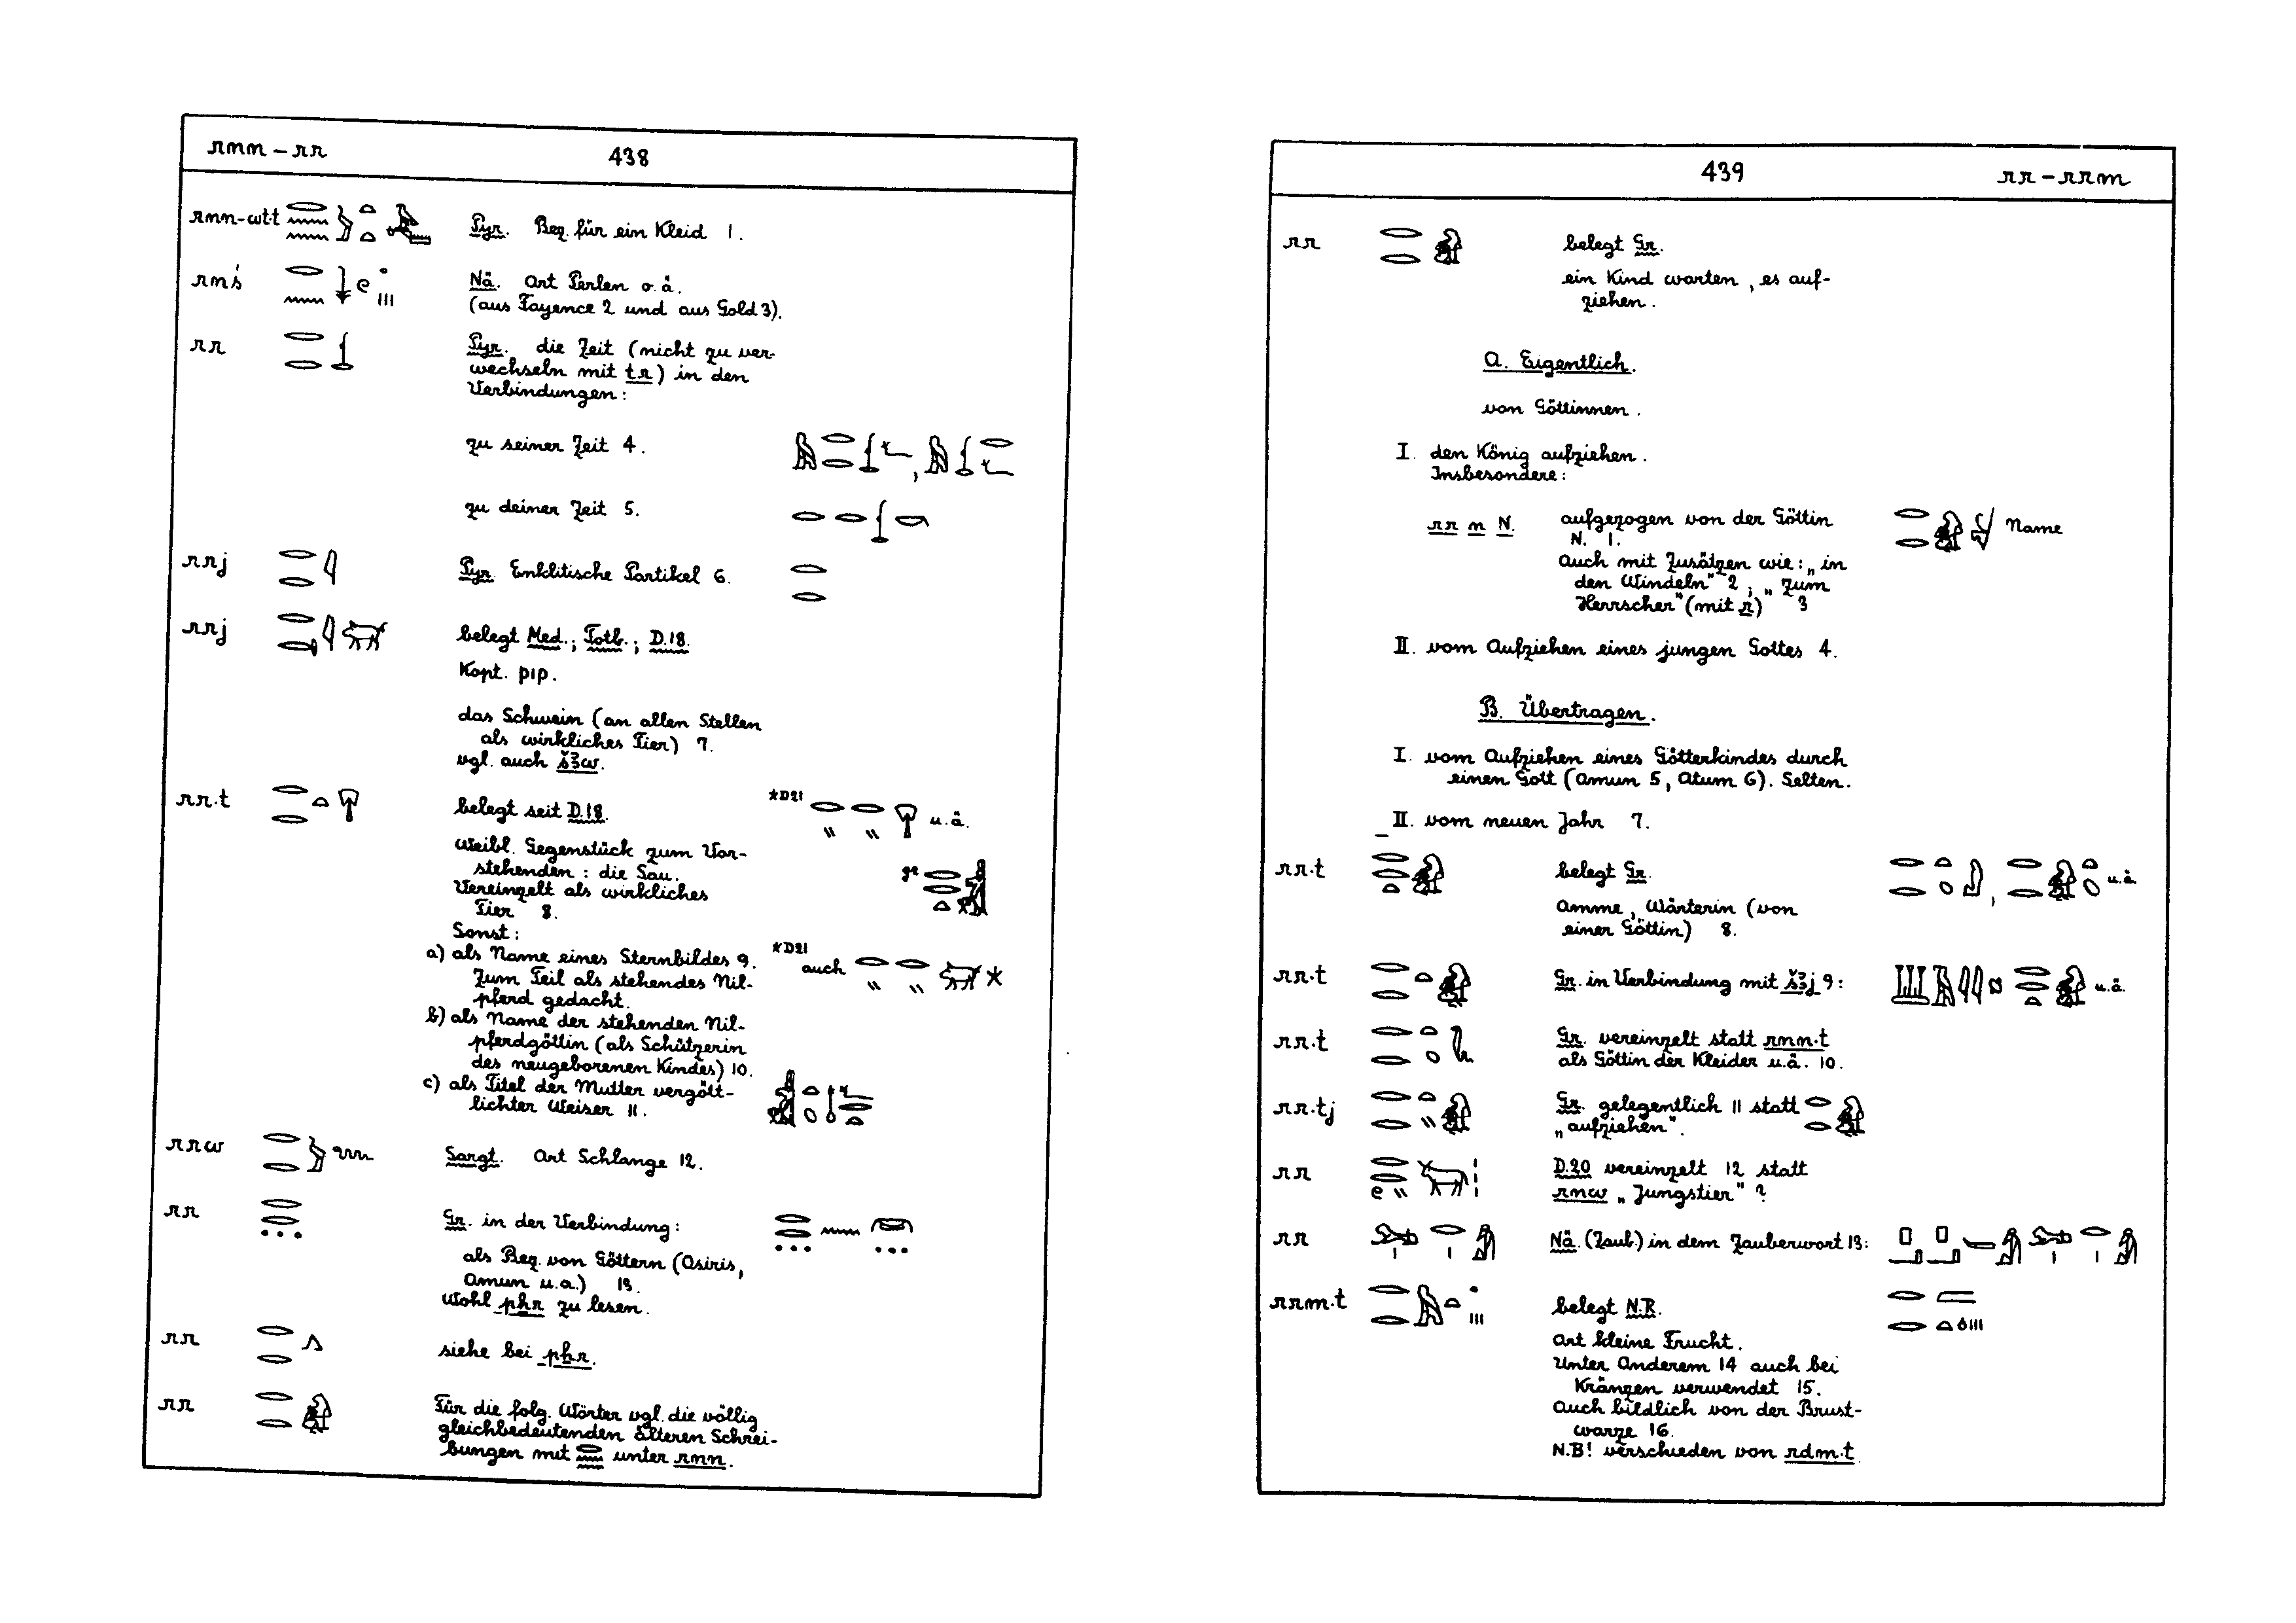 rnn – rr
438
rnn-wt.t
Pyr. Bez. für ein Kleid 1.
rnś
Nä. Art Perlen o.ä.
(aus Fayence 2 und aus Gold 3).
rr
Pyr. die Zeit (nicht zu ver-
wechseln mit tr) in den
Verbindungen:
zu seiner Zeit 4.
zu deiner Zeit 5.
rrj
Pyr. Enklitische Partikel 6.
rrj
belegt Med.; Totb.; D.18.
Kopt. ⲣⲓⲣ.
das Schwein (an allen Stellen
als wirkliches Tier) 7.
vgl. auch šꜣw.
rr.t
belegt seit D.18.
*D21
u.ä.
Weibl. Gegenstück zum Vor-
stehenden: die Sau.
gr
Vereinzelt als wirkliches
Tier 8.
Sonst:
a) als Name eines Sternbildes 9.
*D21
auch
Zum Teil als stehendes Nil-
pferd gedacht.
b) als Name der stehenden Nil-
pferdgöttin (als Schützerin
des neugeborenen Kindes) 10.
c) als Titel der Mutter vergött-
lichter Weiser 11.
rrw
Sargt. Art Schlange 12.
rr
Gr. in der Verbindung:
als Bez. von Göttern (Osiris,
Amun u.a.) 13.
Wohl pẖr zu lesen.
rr
siehe bei pẖr.
rr
Für die folg. Wörter vgl. die völlig
gleichbedeutenden älteren Schrei-
bungen mit unter rnn.
439
rr – rrm
rr
belegt Gr.
ein Kind warten, es auf-
ziehen.
A. Eigentlich.
von Göttinnen.
I. den König aufziehen.
Insbesondere:
rr n N. aufgezogen von der Göttin
Name
N. 1.
Auch mit Zusätzen wie: „in
den Windeln" 2; „zum
Herrscher" (mit r) 3
II. vom Aufziehen eines jungen Gottes 4.
B. Übertragen.
I. vom Aufziehen eines Götterkindes durch
einen Gott (Amun 5, Atum 6). Selten.
II. vom neuen Jahr 7.
rr.t
belegt Gr.
u.ä.
Amme, Wärterin (von
einer Göttin) 8.
rr.t
Gr. in Verbindung mit šꜣj 9:
u.ä.
rr.t
Gr. vereinzelt statt rnn.t
als Göttin der Kleider u.ä. 10.
rr.tj
Gr. gelegentlich 11 statt
„aufziehen".
rr
D.20 vereinzelt 12 statt
rnw „Jungstier"?
rr
Nä. (Zaub.) in dem Zauberwort 13:
rrm.t
belegt N.R.
Art kleine Frucht.
Unter Anderem 14 auch bei
Kränzen verwendet 15.
Auch bildlich von der Brust-
warze 16.
N.B! verschieden von rdm.t